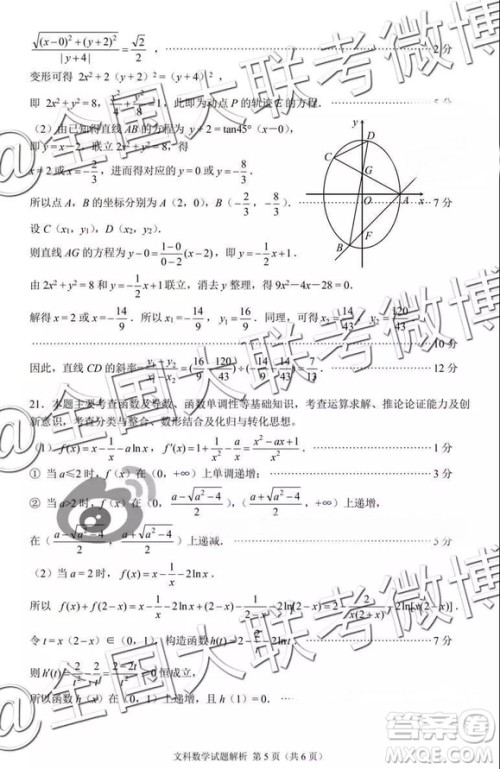 √((x-0)²+(y+2)²) / |y+4| = √2/2. 2 分
变形可得 2x²+2(y+2)²=(y+4)²,
即 2x²+y²=8, x²/4+y²/8=1, 此即为动点 P 的轨迹 E 的方程. 5 分
(2) 由已知得直线 AB 的方程为 y+2=tan45°(x-0),
即 y=x-2, 联立 2x²+y²=8, 得
x=2 或 x=-2/3, 进而得对应的 y=0 或 y=-8/3.
所以点 A, B 的坐标分别为 A(2, 0), B(-2/3, -8/3). 7 分
设 C(x₁, y₁), D(x₂, y₂).
则直线 AG 的方程为 y-0=(1-0)/(0-2)(x-2), 即 y=-1/2x+1.
由 2x²+y²=8 和 y=-1/2x+1 联立, 消去 y 整理, 得 9x²-4x-28=0.
解得 x=2 或 x=-14/9. 所以 x₁=-14/9, y₁=16/9. 同理, 可得 x₂=14/43, y₂=120/43
10 分
因此, 直线 CD 的斜率 = (y₁-y₂)/(x₁-x₂) = (16/9-120/43)÷(-14/9-14/43) = 7/13. 12 分
y
D
C
G
O
A
x
B
F
21. 本题主要考查函数及导数、函数单调性等基础知识, 考查运算求解、推论论证能力及创
新意识, 考查分类与整合、数形结合及化归与转化思想.
(1) f(x)=x-1/x-alnx, f′(x)=1+1/x²-a/x=(x²-ax+1)/x². 1 分
① 当 a≤2 时, f(x) 在 (0, +∞) 上单调递增; 3 分
② 当 a>2 时, f(x) 在 (0, (a-√(a²-4))/2), ((a+√(a²-4))/2, +∞) 上递增,
在 ((a-√(a²-4))/2, (a+√(a²-4))/2) 上递减. 5 分
(2) 当 a=2 时, f(x)=x-1/x-2lnx.
所以 f(x)+f(2-x)=x-1/x-2lnx+(2-x)
令 t=x(2-x)∈(0, 1), 构造函数 h(t)=2-2/t-2lnt, 7 分
则 h′(t)=2/t²-2/t=(2-2t)/t²>0 恒成立,
所以函数 h(x) 在 (0, 1) 上递增, 且 h(1)=0.
文科数学试题解析 第 5 页(共 6 页)
@全国大联考微博
@全国大联考微博
@全国大联考微博
答案圈